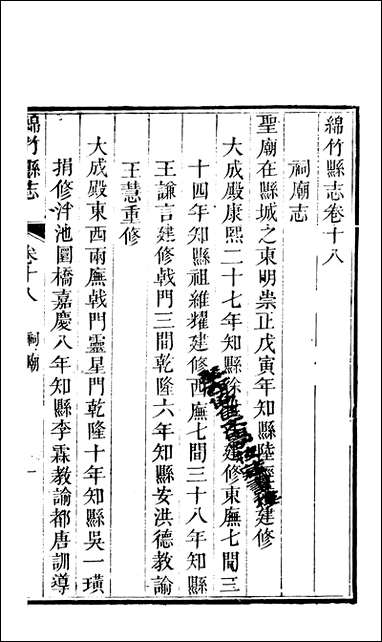 綿竹縣志卷十八
祠廟志
聖廟在縣城之東明崇正戊寅年知縣陸經建修
大成殿康熙二十七年知縣徐建修東廡七間三
十四年知縣祖維燿建修西廡七間三十八年知縣
王謙言建修戟門三間乾隆六年知縣安洪德教諭
王慧重修
大成殿東西兩廡戟門靈星門乾隆十年知縣吳一璜
捐修泮池圜橋嘉慶八年知縣李霖教諭都唐訓導
綿竹縣志
卷十八
祠廟
一